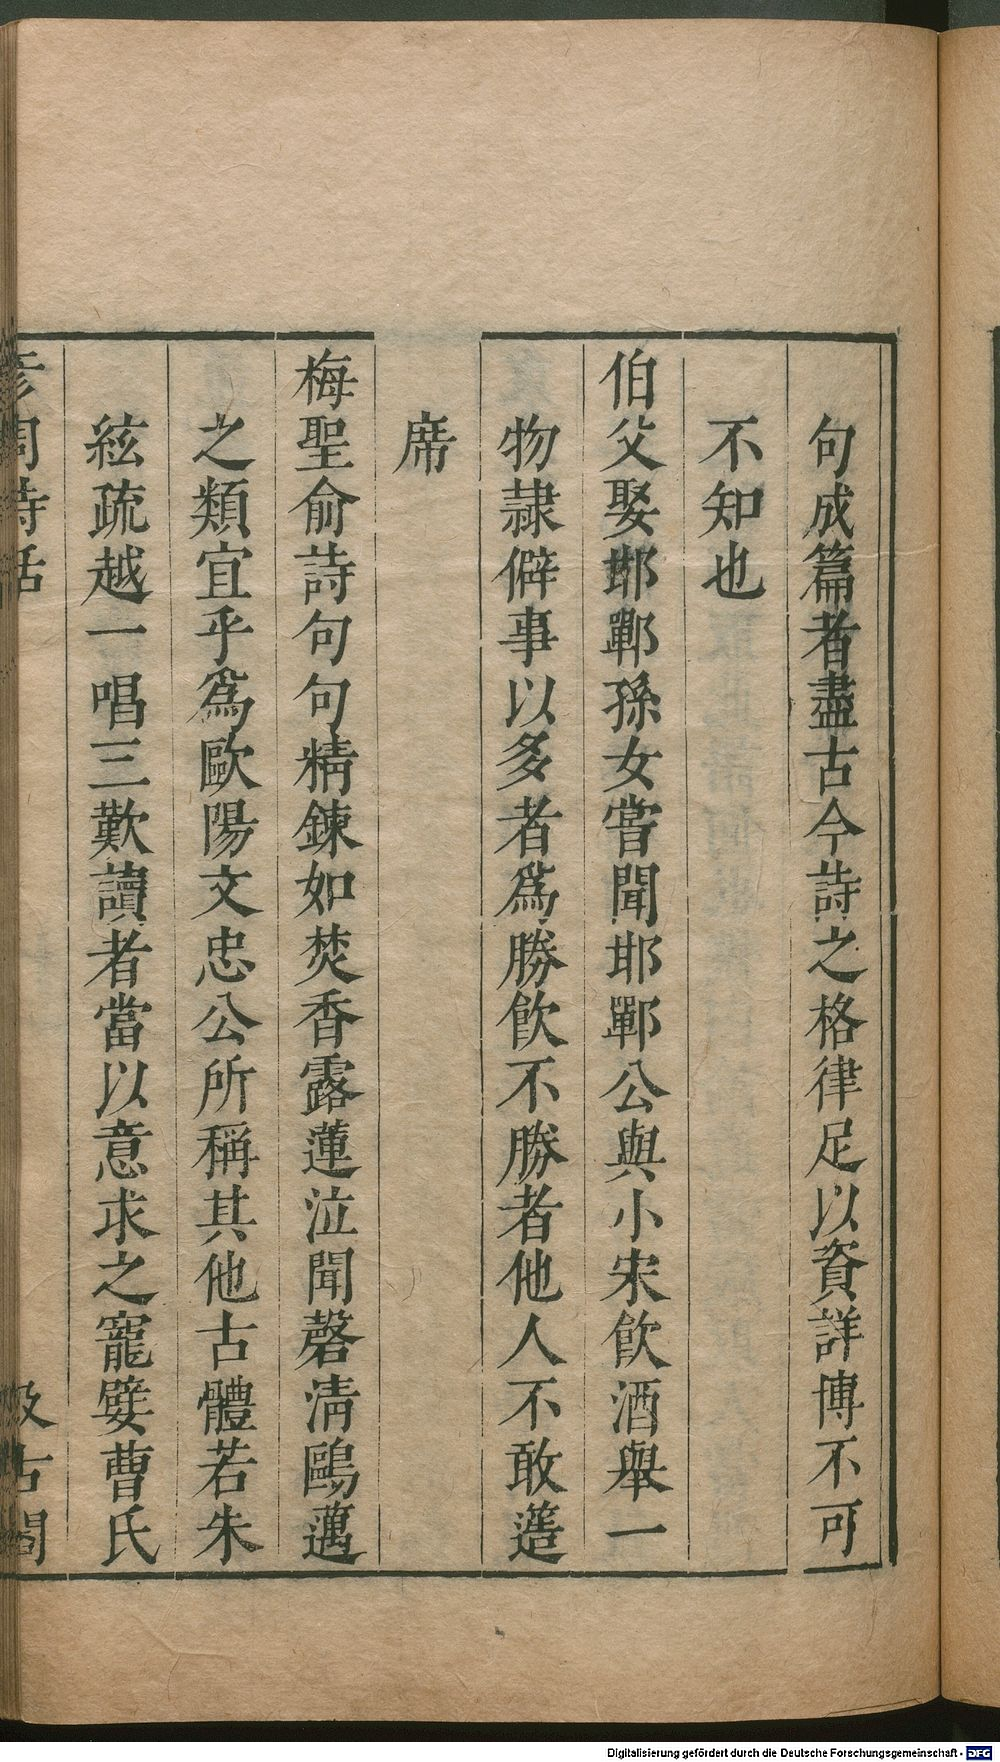 句成篇者盡古今詩之格律足以資詳博不可
不知也
伯父娶邯鄲孫女嘗聞邯鄲公與小宋飲酒舉一
物隷僻事以多者爲勝飲不勝者他人不敢造
席
梅聖俞詩句句精鍊如焚香露蓮泣聞磬清鷗邁
之類宜乎爲歐陽文忠公所稱其他古體若朱
絃疏越一唱三歎讀者當以意求之寵嬖曹氏
彦周詩話
汲古閣
Digitalisierung gefördert durch die Deutsche Forschungsgemeinschaft - DFG